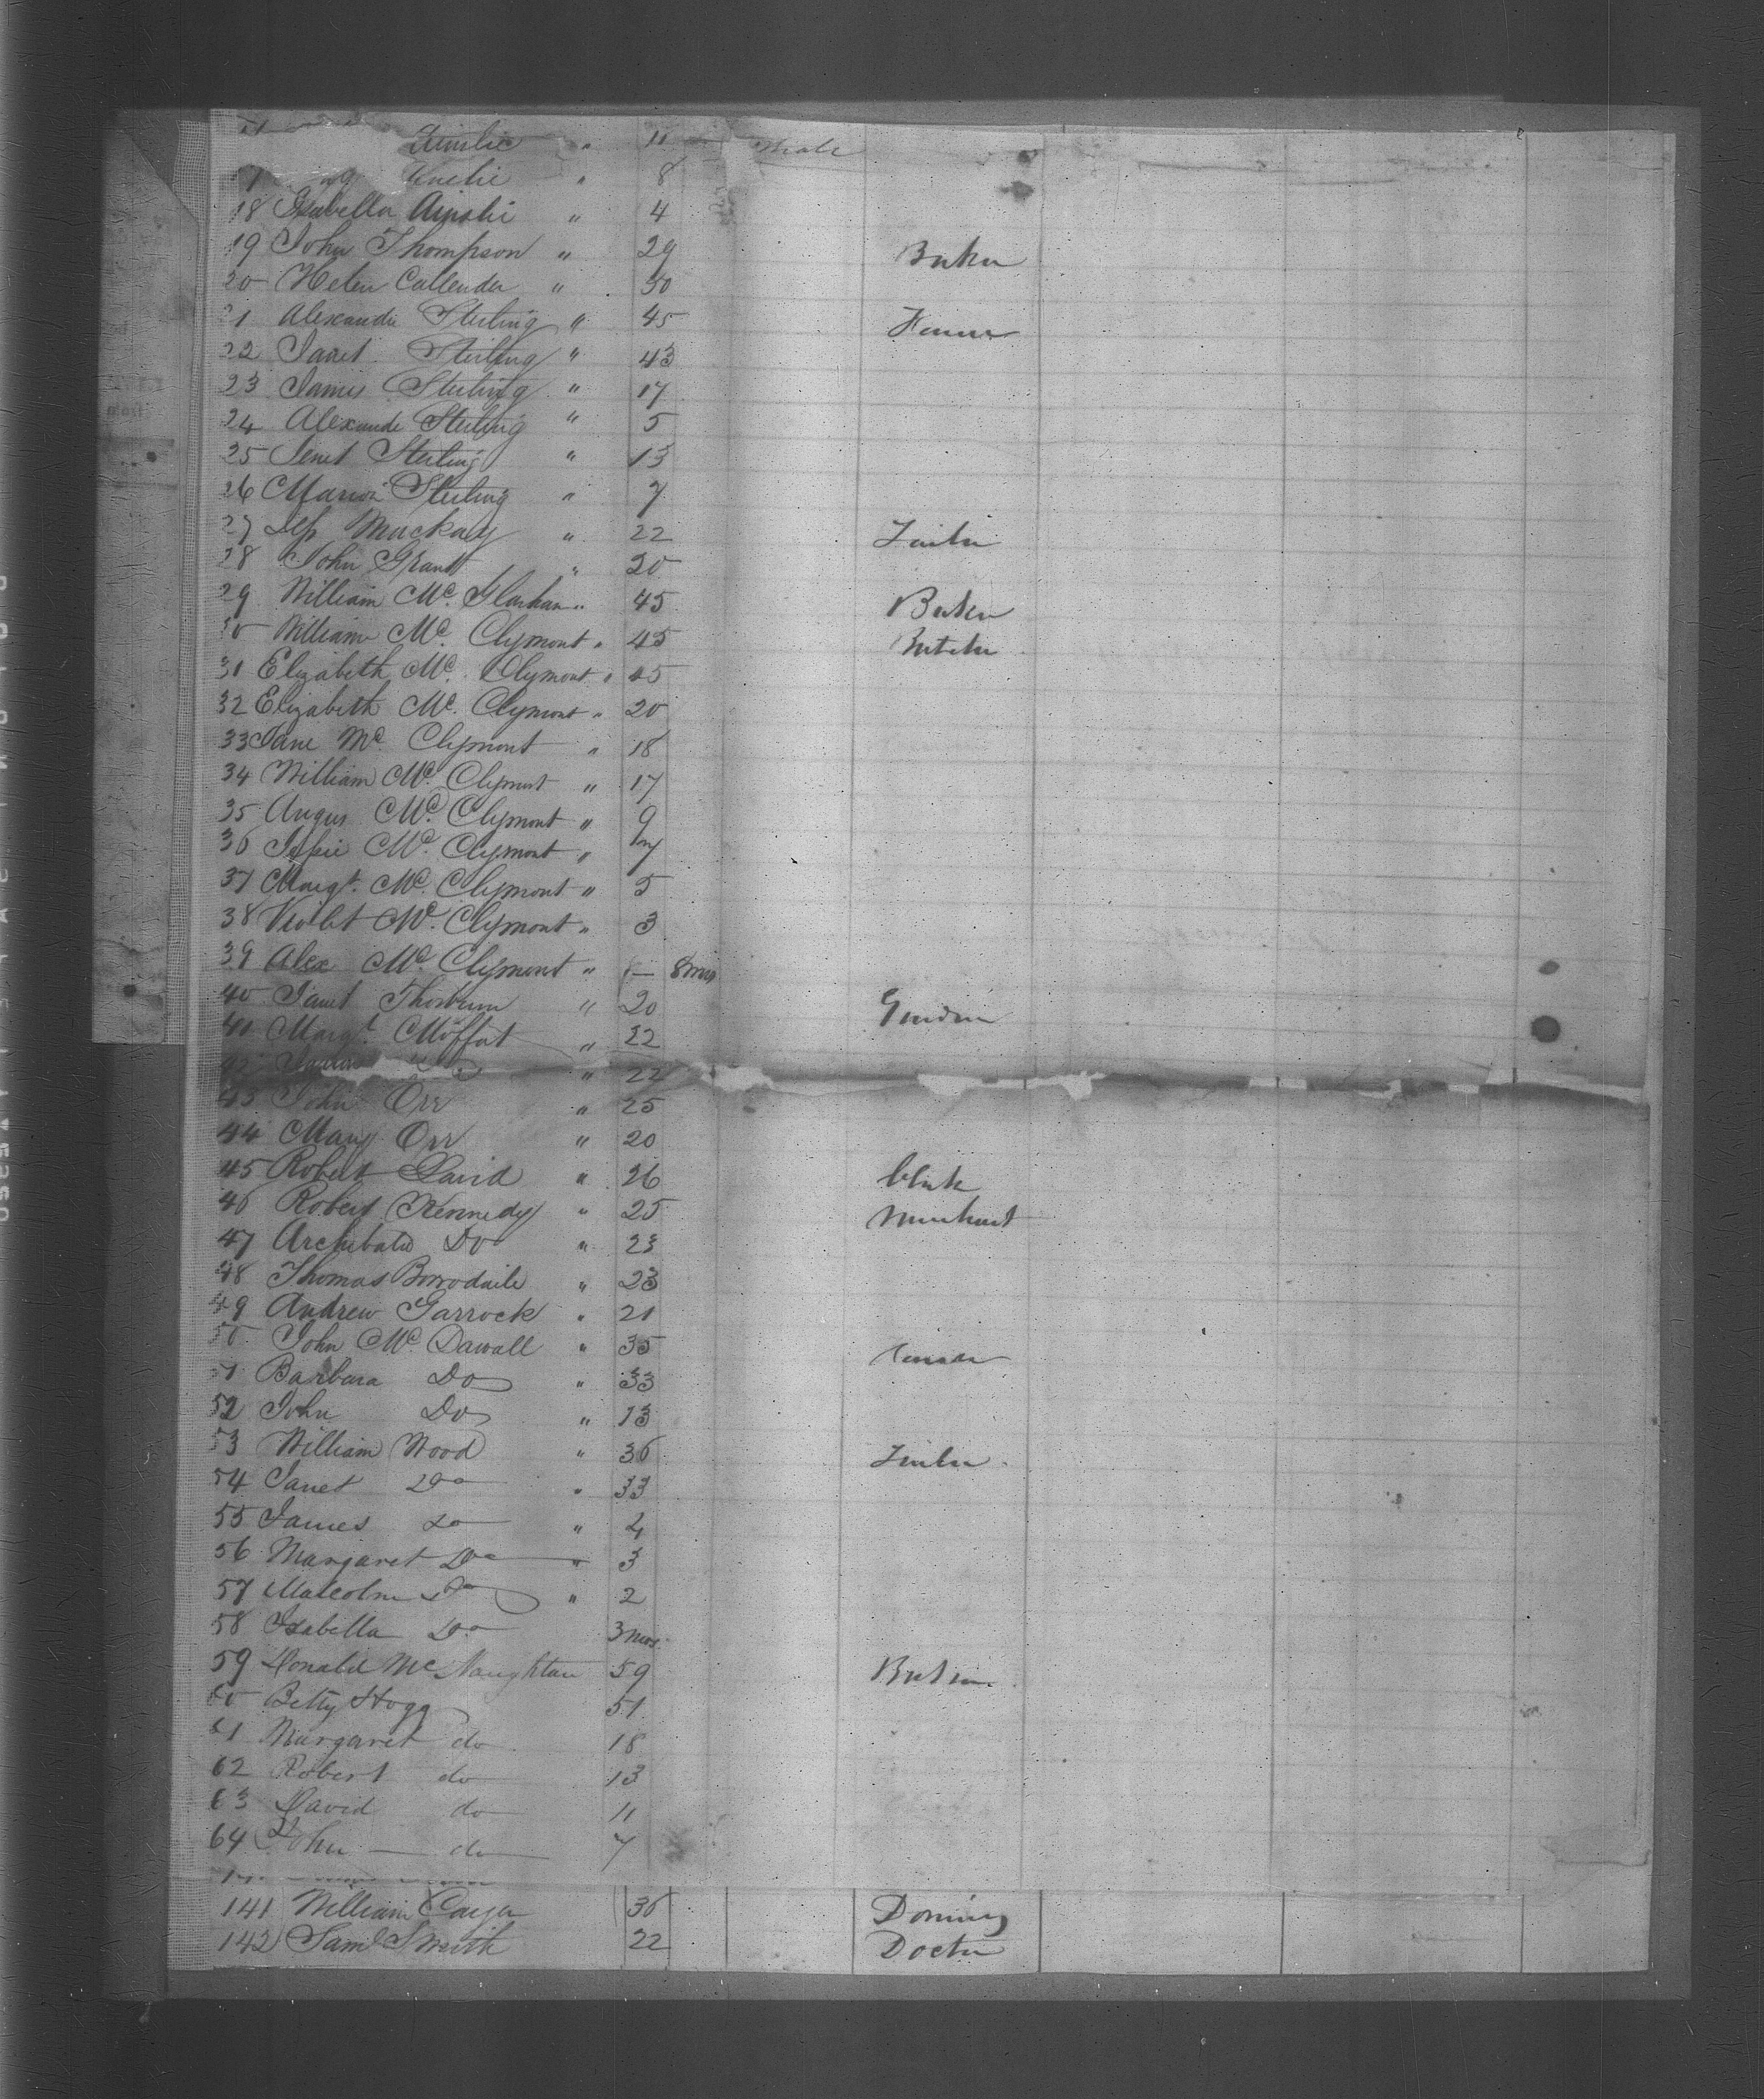 Ainslie " 11 Male
Ainslie " 8
18 Isabella Ainslie " 4
19 John Thompson " 29 Baker
20 Helen Callender " 30
21 Alexander Sterling " 45 Farmer
22 Janet Sterling " 43
23 James Sterling " 17
24 Alexander Sterling " 5
25 Jenet Sterling " 13
26 Marion Sterling " 7
27 Mackay " 22 Tailor
28 John Grant " 20
29 William Mc. " 45 Baker
30 William Mc. Clymont " 45 Butcher
31 Elizabeth Mc. Clymont " 45
32 Elizabeth Mc. Clymont " 20
33 Jane Mc Clymont " 18
34 William Mc. Clymont " 17
35 Angus Mc. Clymont " 9
36 Jessie Mc. Clymont " 7
37 Margt. Mc. Clymont " 5
38 Violet Mc. Clymont " 3
39 Alex Mc. Clymont " — 8 mos
40 Janet Thorburn " 20
41 Margt. Moffat " 22
42 " 22
43 John Orr " 25
44 Mary Orr " 20
45 Robert David " 26 Clerk
46 Robert Kennedy " 25 Merchant
47 Archibald Do " 23
48 Thomas Borrodaile " 23
49 Andrew Garrock " 21
50 John Mc. Dawall " 35
51 Barbara Do " 33
52 John Do " 13
53 William Wood " 36 Tailor
54 Janet Do " 33
55 James do " 4
56 Margaret Do " 3
57 Malcolm Do " 2
58 Isabella Do 3 mos.
59 Donald Mc Naughtan 59
60 Betty Hogg 51
61 Margaret do 18
62 Robert do 13
63 David do 11
64 John — do 7
141 William 36
142 Saml Smith 22 Doctor